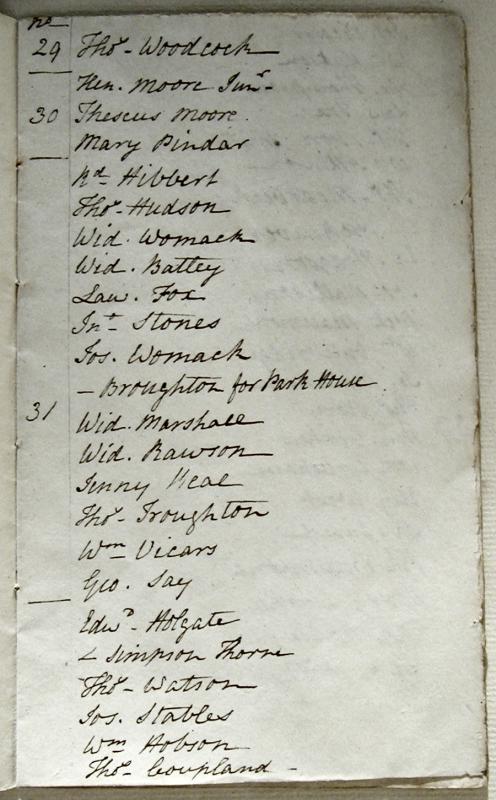 No
29 Thos. Woodcock
Hen. Moore Junr.
30 Theseus Moore
Mary Pindar
Rd. Hibbert
Thos. Hudson
Wid. Womack
Wid. Batley
Law. Fox
Jno. Stones
Jos. Womack
— Broughton for Park House
31 Wid. Marshall
Wid. Rawson
Jenny Heal
Thos. Troughton
Wm Vicars
Geo. Say
Edwd. Holgate
Simpson Thorne
Thos. Watson
Jos. Stables
Wm Hobson
Thos. Coupland –